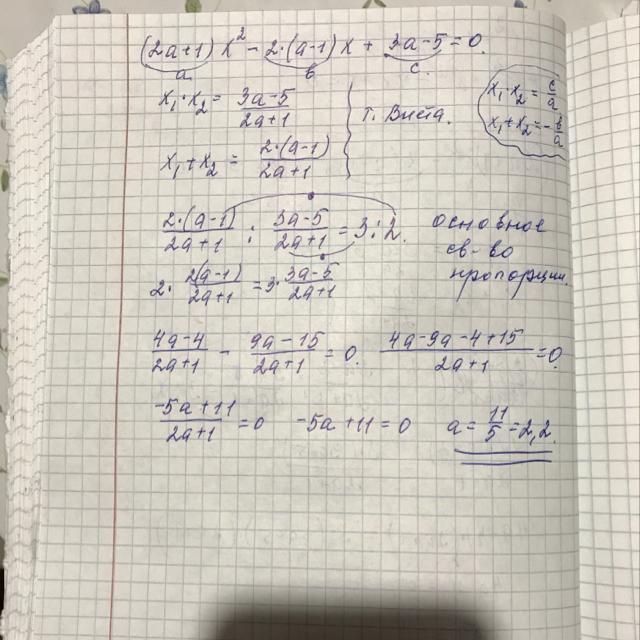 (2a+1) x² - 2·(a-1)x + 3a-5 = 0.
a в c.
x₁·x₂ = (3a-5)/(2a+1)
т. Виета.
x₁·x₂ = c/a
x₁+x₂ = -в/a
x₁+x₂ = (2·(a-1))/(2a+1)
(2·(a-1))/(2a+1) : (3a-5)/(2a+1) = 3:2.
основное
св-во
пропорции.
2·(2(a-1))/(2a+1) = 3·(3a-5)/(2a+1)
(4a-4)/(2a+1) - (9a-15)/(2a+1) = 0. (4a-9a-4+15)/(2a+1) = 0.
(-5a+11)/(2a+1) = 0 -5a+11 = 0 a = 11/5 = 2,2.